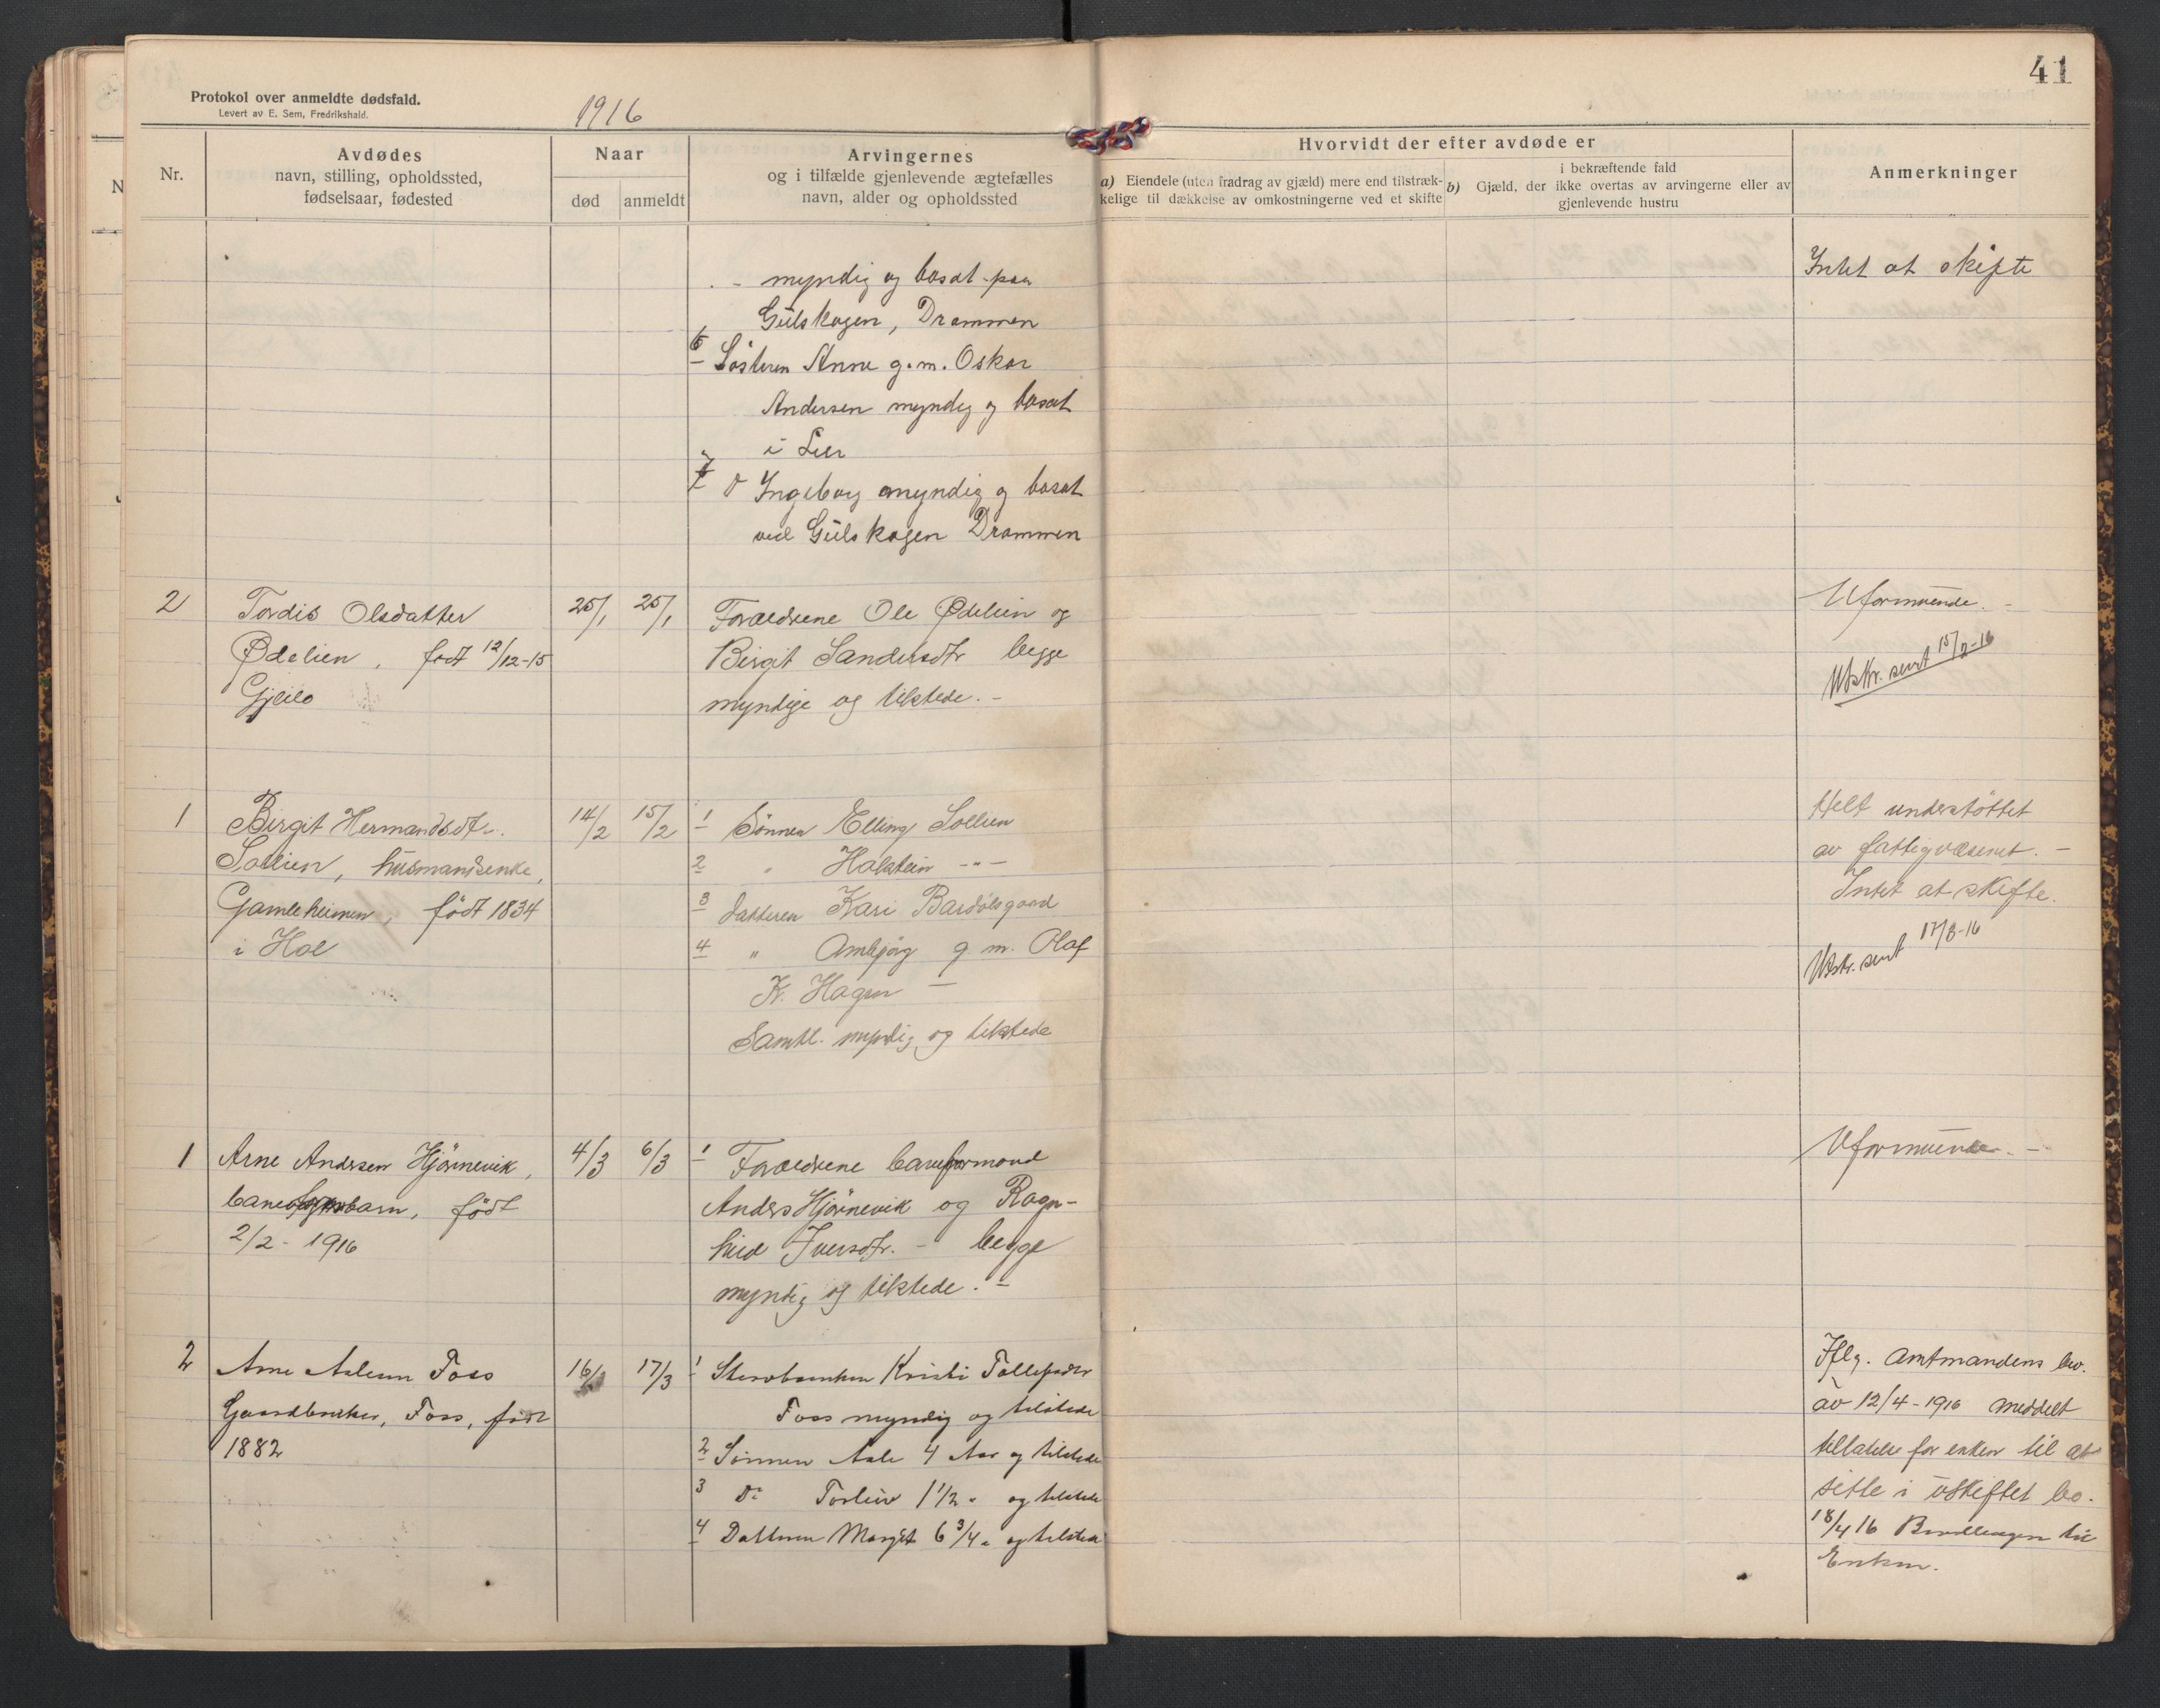 41
Protokol over anmeldte dødsfald.
Levert av E. Sem, Fredrikshald.
1916
Nr.
Avdødes
navn, stilling, opholdssted,
fødselsaar, fødested
Naar
død
anmeldt
Arvingernes
og i tilfælde gjenlevende ægtefælles
navn, alder og opholdssted
Hvorvidt der efter avdøde er
a) Eiendele (uten fradrag av gjæld) mere end tilstræk-
kelige til dækkelse av omkostningerne ved et skifte
i bekræftende fald
b) Gjæld, der ikke overtas av arvingerne eller av
gjenlevende hustru
Anmerkninger
myndig og bosat paa
Gulskogen, Drammen
6 Søsteren Anne g.m. Oskar
Andersen myndig og bosat
i Lier
7 Do Ingeborg myndig og bosat
ved Gulskogen Drammen
Intet at skifte
2
Tordis Olsdatter
Ødelien, født 12/12-15
Gjeilo
25/1
25/1
Forældrene Ole Ødelien og
Birgit Sandersdtr begge
myndige og tilstede. -
Uformuende. -
Utskr. sent 15/2-16
1
Birgit Hermandsdtr.
Sollien, husmandsenke,
Gamleheimen, født 1834
i Hol
14/2
15/2
1 Sønnen Elling Sollien
2 " Halstein -"-
3 Datteren Kari Bardølsgaard
4 " Ambjørg g.m. Olaf
K. Hagen -
Samtl. myndig og tilstede
Helt understøttet
av fattigvæsenet. -
Intet at skifte.
Utskr. sent 17/3-16
1
Arne Andersen Hjørnevik,
født
2/2 - 1916
4/3
6/3
1 Forældrene baneformand
Anders Hjørnevik og Ragn-
hild Iversdtr. - begge
myndig og tilstede. -
Uformuende. -
2
Arne Aslesen Foss
Gaardbruker, Foss, født
1882
16/3
17/3
1 Kristi Tollefsdtr
Foss myndig og tilstede
2 Sønnen Asle 4 Aar og tilstede
3 Do Torleiv 1 1/2 " og tilstede
4 Datteren Margit 6 3/4 " og tilstede
Iflg. Amtmandens bev.
av 12/4 - 1916 meddelt
tilladelse for enken til at
sitte i uskiftet bo.
18/4 16 Bevillingen til
Enken.